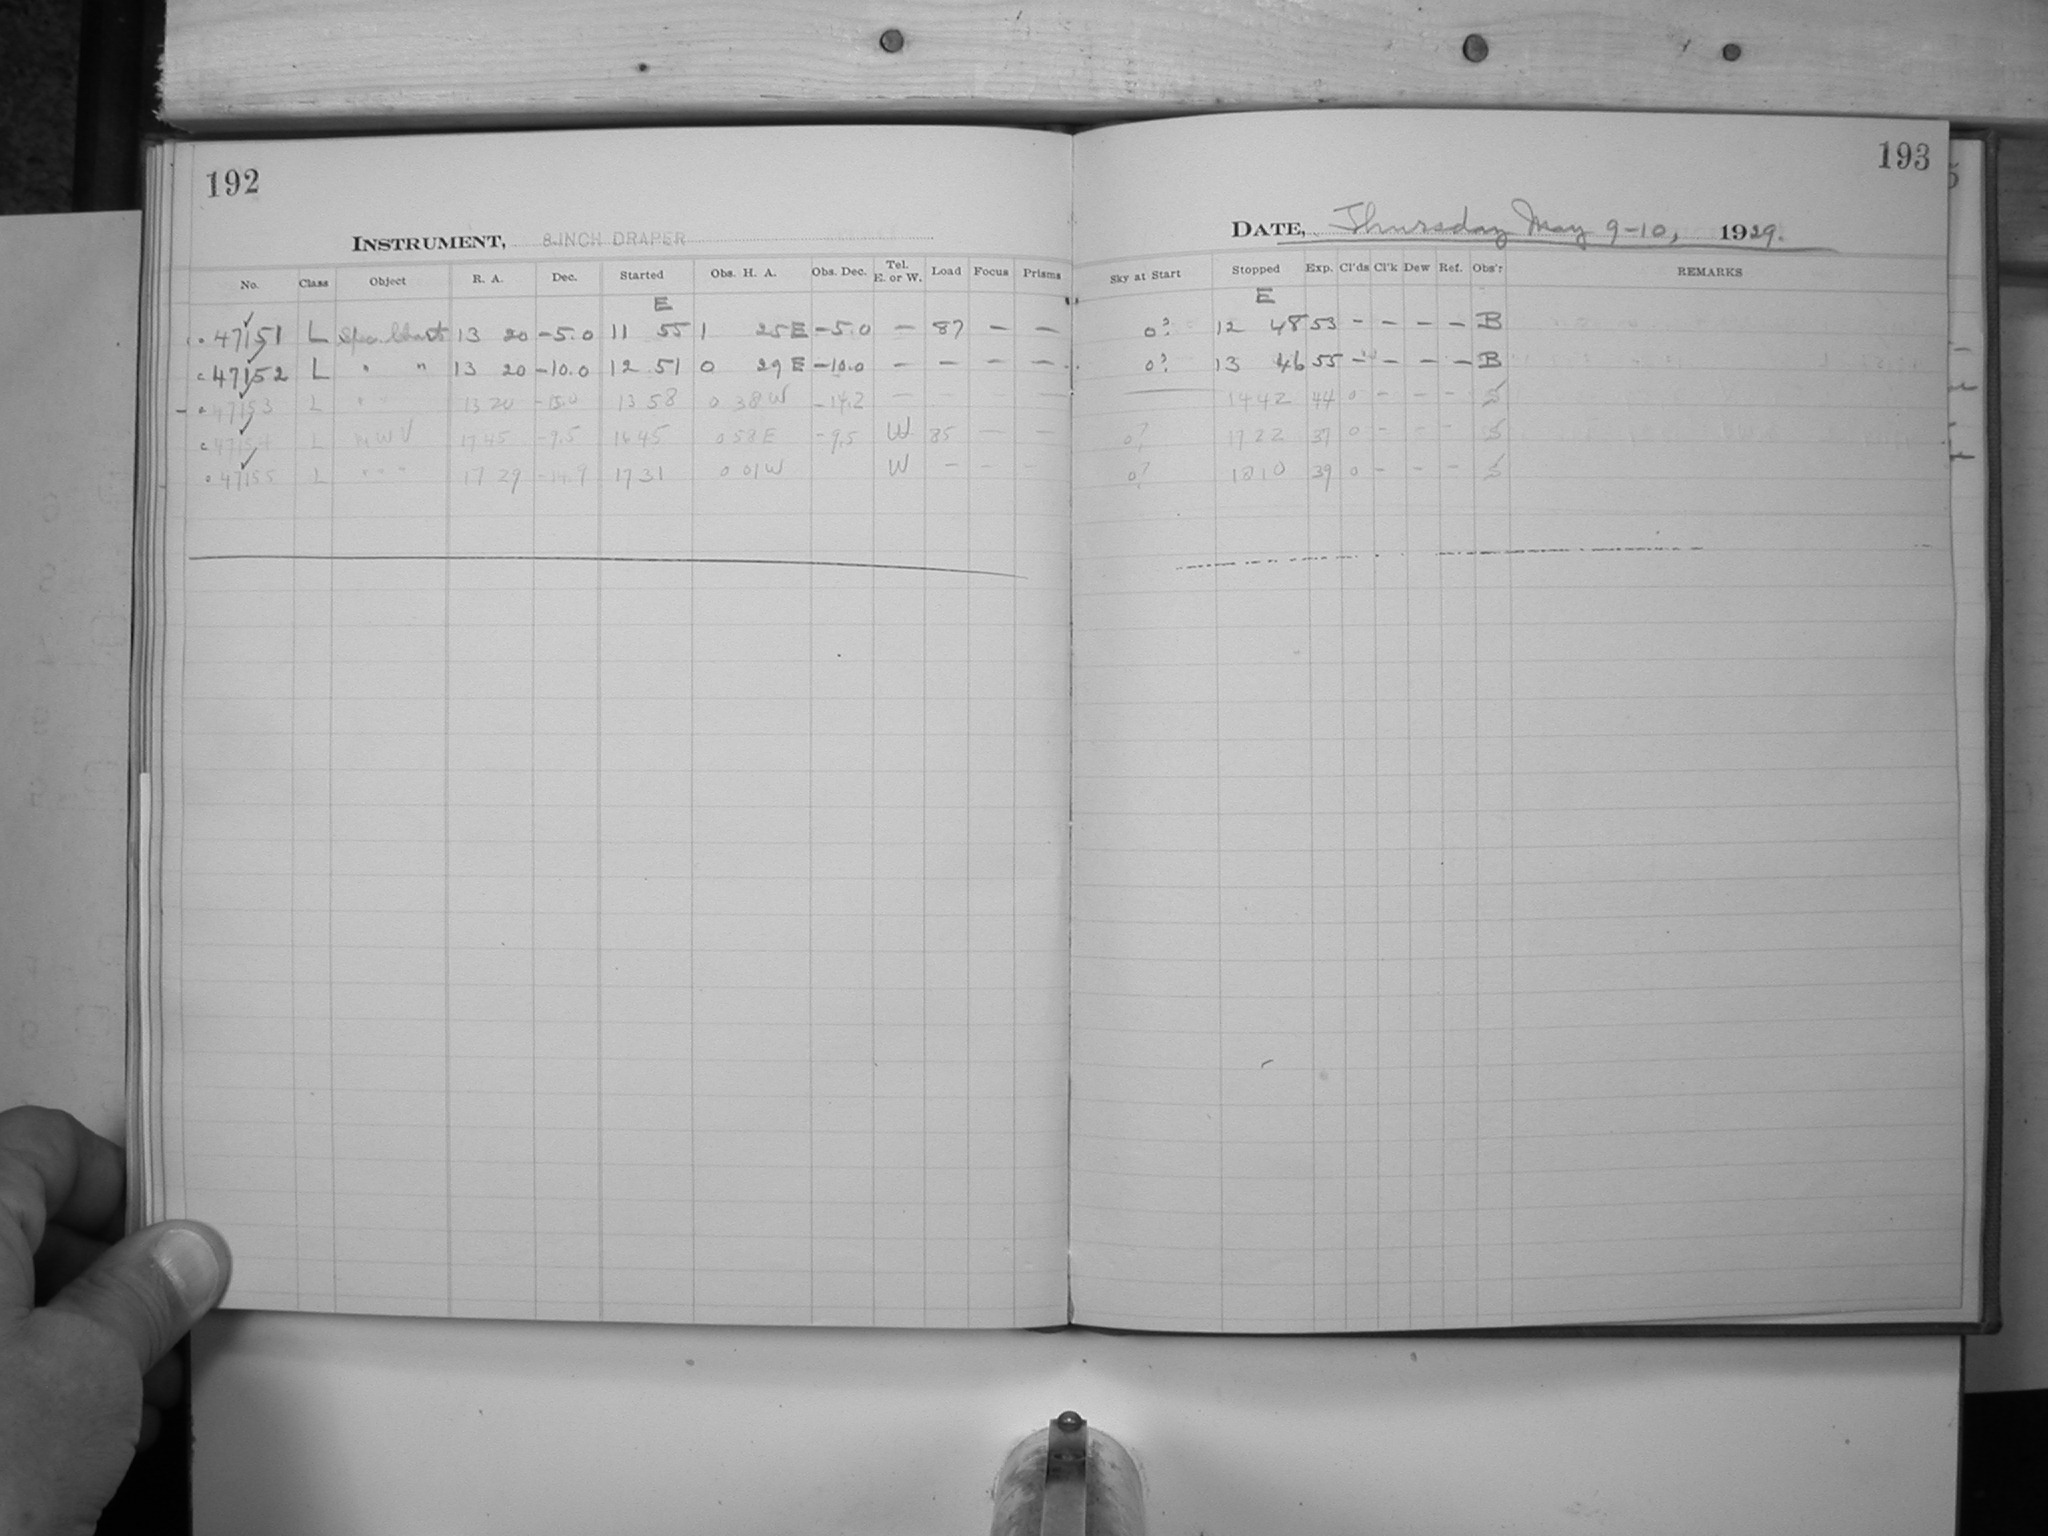 192
INSTRUMENT, 8-INCH DRAPER
No. Class Object R. A. Dec. Started Obs. H. A. Obs. Dec. Tel. E. or W. Load Focus Prisms
E
47151 L Spec. Chart 13 20 -5.0 11 55 1 25 E -5.0 - 87 - -
47152 L " " 13 20 -10.0 12 51 0 29 E -10.0 - - - -
47153 L " " 13 20 -15.0 13 58 0 38 W -14.2 - - - -
47154 L MWV 17 45 -9.5 16 45 0 58 E -9.5 W 85 - -
47155 L " " " 17 29 -14.9 17 31 0 01 W W - - -
193
DATE, Thursday May 9-10, 1929.
Sky at Start Stopped Exp. Cl'ds Cl'k Dew Ref. Obs'r REMARKS
E
0? 12 48 53 - - - - B
0? 13 46 55 - - - - B
14 42 44 0 - - -
0? 17 22 37 0 - - -
0? 18 10 39 0 - - -